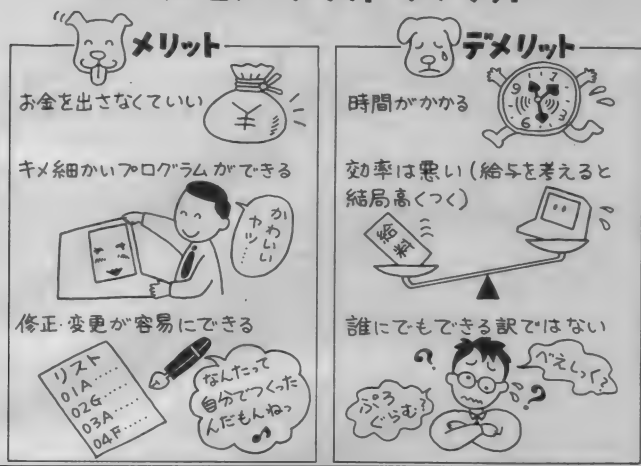 メリット
お金を出さなくていい
¥
キメ細かいプログラムができる
かわいい
ヤツ……
修正・変更が容易にできる
リスト
01A……
02G……
03A……
04F……
なんたって
自分でつくった
んだもんねっ
デメリット
時間がかかる
12
3
6
9
効率は悪い(給与を考えると
結局高くつく)
給料
誰にでもできる訳ではない
?
?
べえしっく?
ぷろ
ぐらむ?